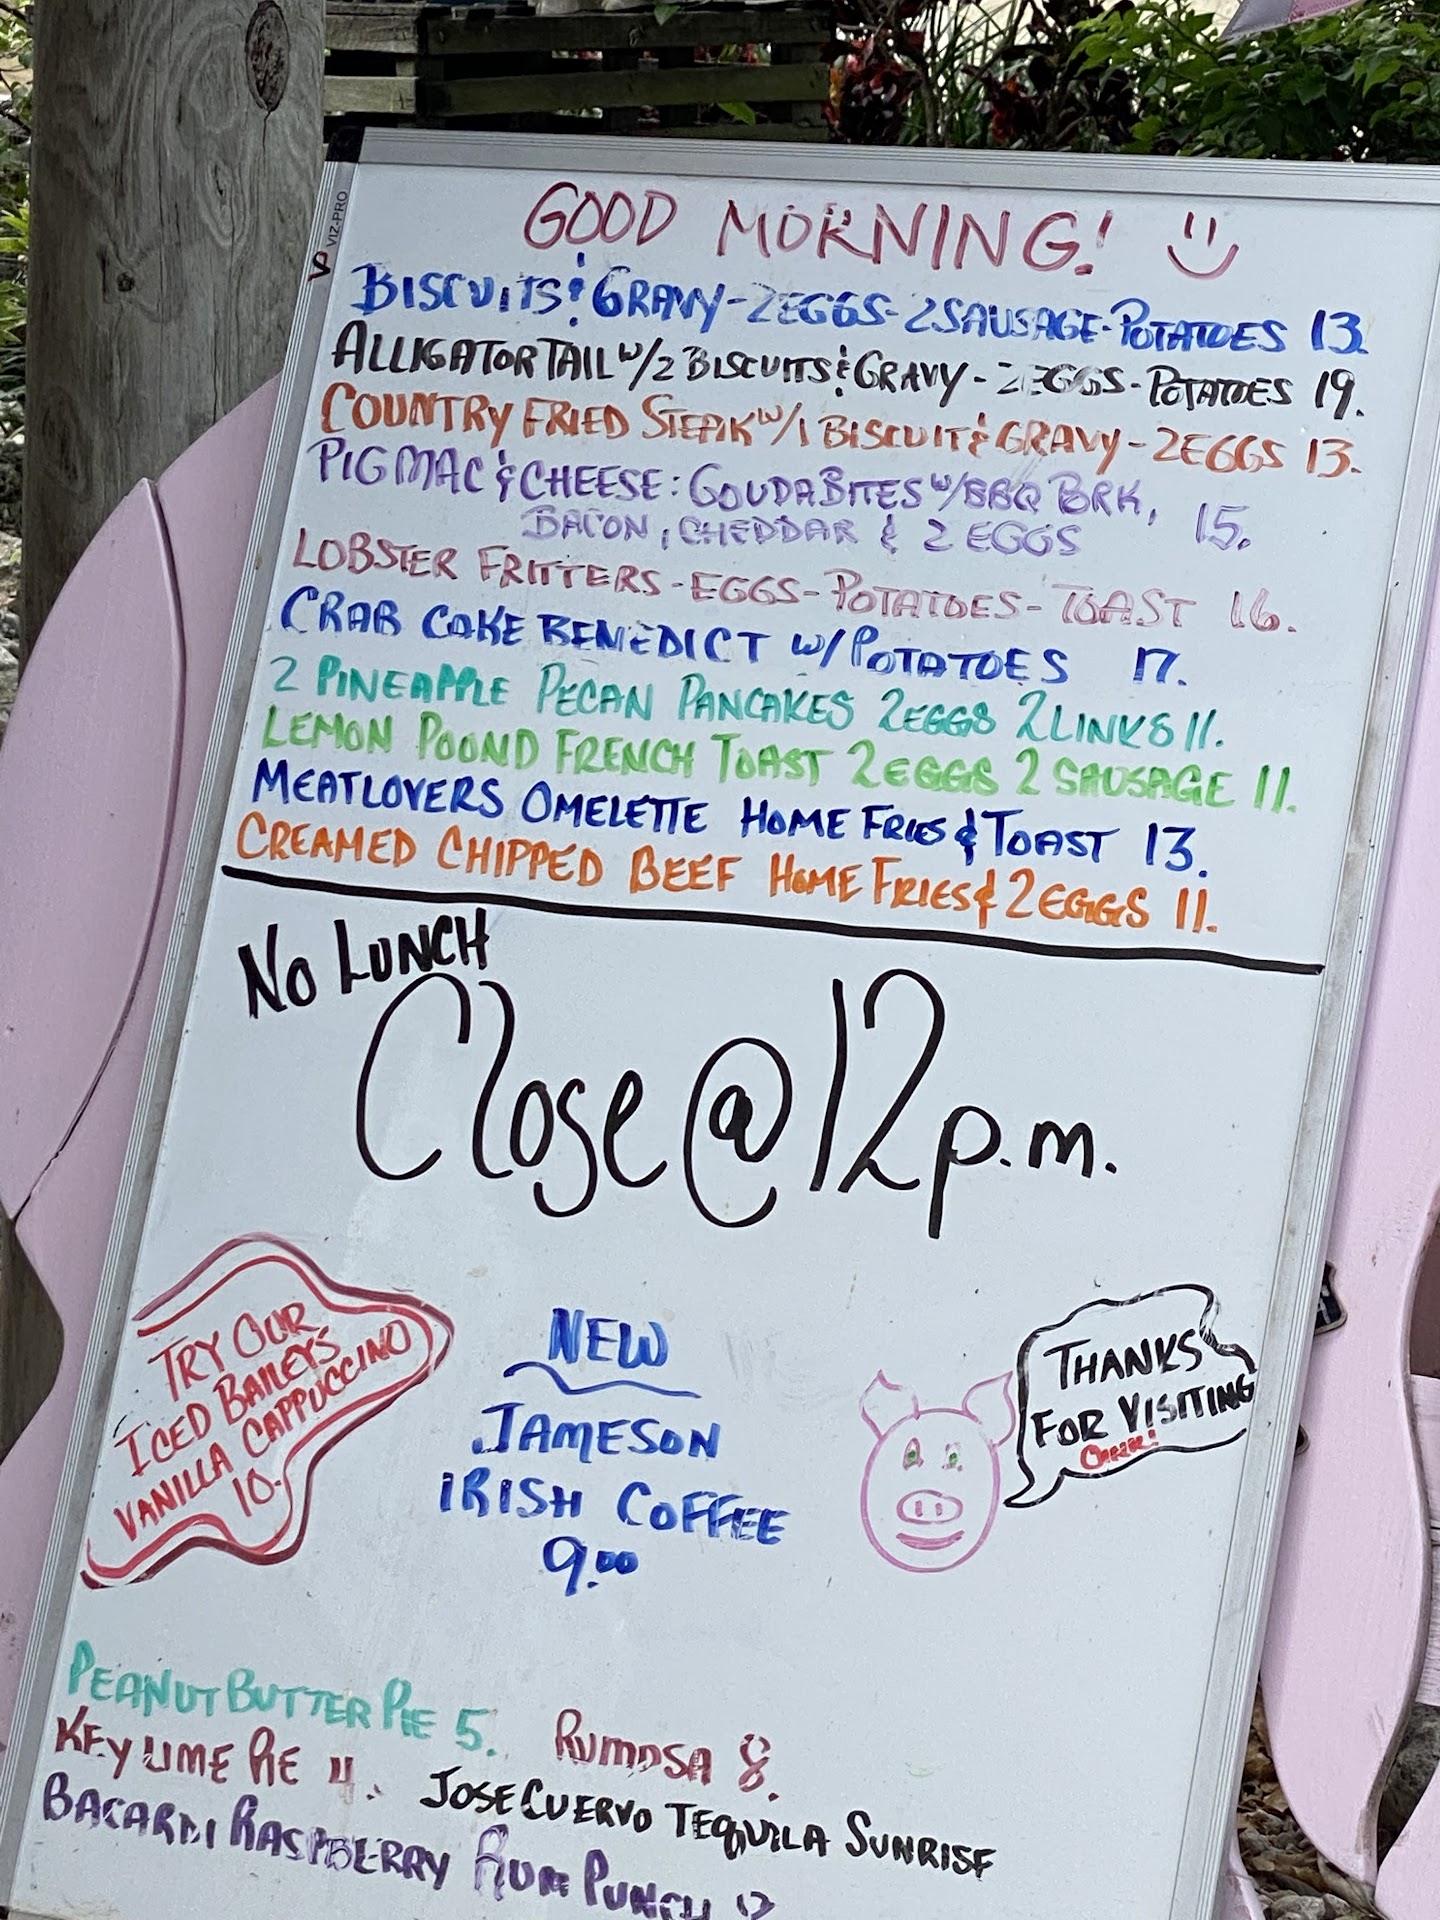 VP VIZ-PRO
GOOD MORNING!
BISCUITS & GRAVY - 2 EGGS - 2 SAUSAGE - POTATOES 13.
ALLIGATOR TAIL W/ 2 BISCUITS & GRAVY - 2 EGGS - POTATOES 19.
COUNTRY FRIED STEAK W/ 1 BISCUIT & GRAVY - 2 EGGS 13.
PIG MAC & CHEESE: GOUDA BITES W/ BBQ PORK,
BACON, CHEDDAR & 2 EGGS 15.
LOBSTER FRITTERS - EGGS - POTATOES - TOAST 16.
CRAB CAKE BENEDICT W/ POTATOES 17.
2 PINEAPPLE PECAN PANCAKES 2 EGGS 2 LINKS 11.
LEMON POUND FRENCH TOAST 2 EGGS 2 SAUSAGE 11.
MEATLOVERS OMELETTE HOME FRIES & TOAST 13.
CREAMED CHIPPED BEEF HOME FRIES & 2 EGGS 11.
NO LUNCH
Close @ 12 p.m.
TRY OUR
ICED BAILEYS
VANILLA CAPPUCCINO
10.
NEW
JAMESON
IRISH COFFEE
9.00
THANKS
FOR VISITING
OINK!
PEANUT BUTTER PIE 5. RUMOSA 8.
KEY LIME PIE 4. JOSE CUERVO TEQUILA SUNRISE
BACARDI RASPBERRY RUM PUNCH